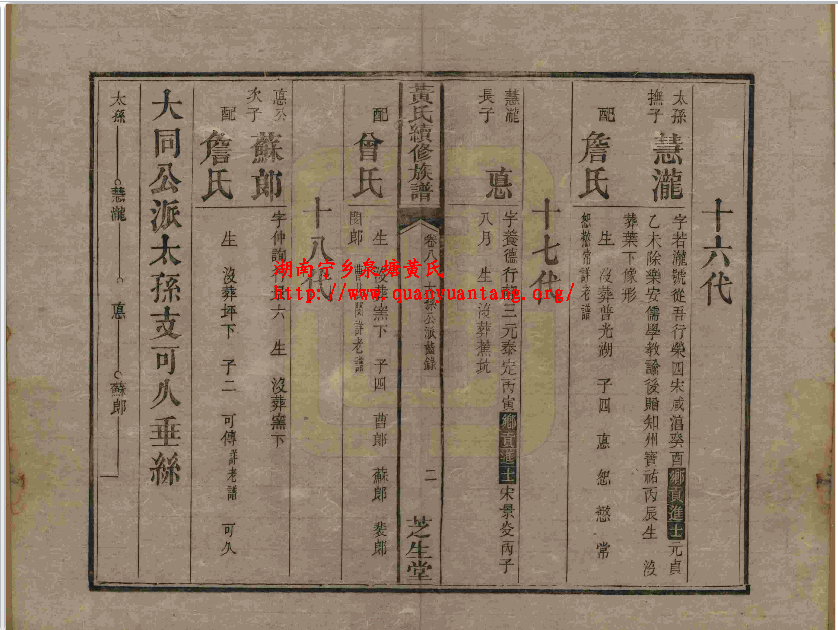 十六代
太孫
撫子
慧瀧
字若瀧號從吾行榮四宋咸淳癸酉鄉貢進士元貞
乙未除樂安儒學教諭後贈知州寶祐丙辰生 沒
葬葉下像形
配
詹氏
生 沒葬普光湖 子四 惪 恕 懋 常
恕懋常詳老譜
十七代
慧瀧
長子
惪
字養德行 三元泰定丙寅鄉貢進士宋景炎丙子
八月 生 沒葬蕉坑
配
曾氏
生 沒葬窯下 子四 曹郎 蘇郎 裴郎
閔郎
詳老譜
黃氏續修族譜
卷八
二
芝生堂
十八代
惪公
次子
蘇郎
字仲詢 六 生 沒葬窯下
配
詹氏
生 沒葬坪下 子二 可傳詳老譜 可久
大同公派太孫支可久垂絲
太孫 慧瀧 惪 蘇郎
湖南宁乡泉塘黄氏
http://www.quanyuantang.org/